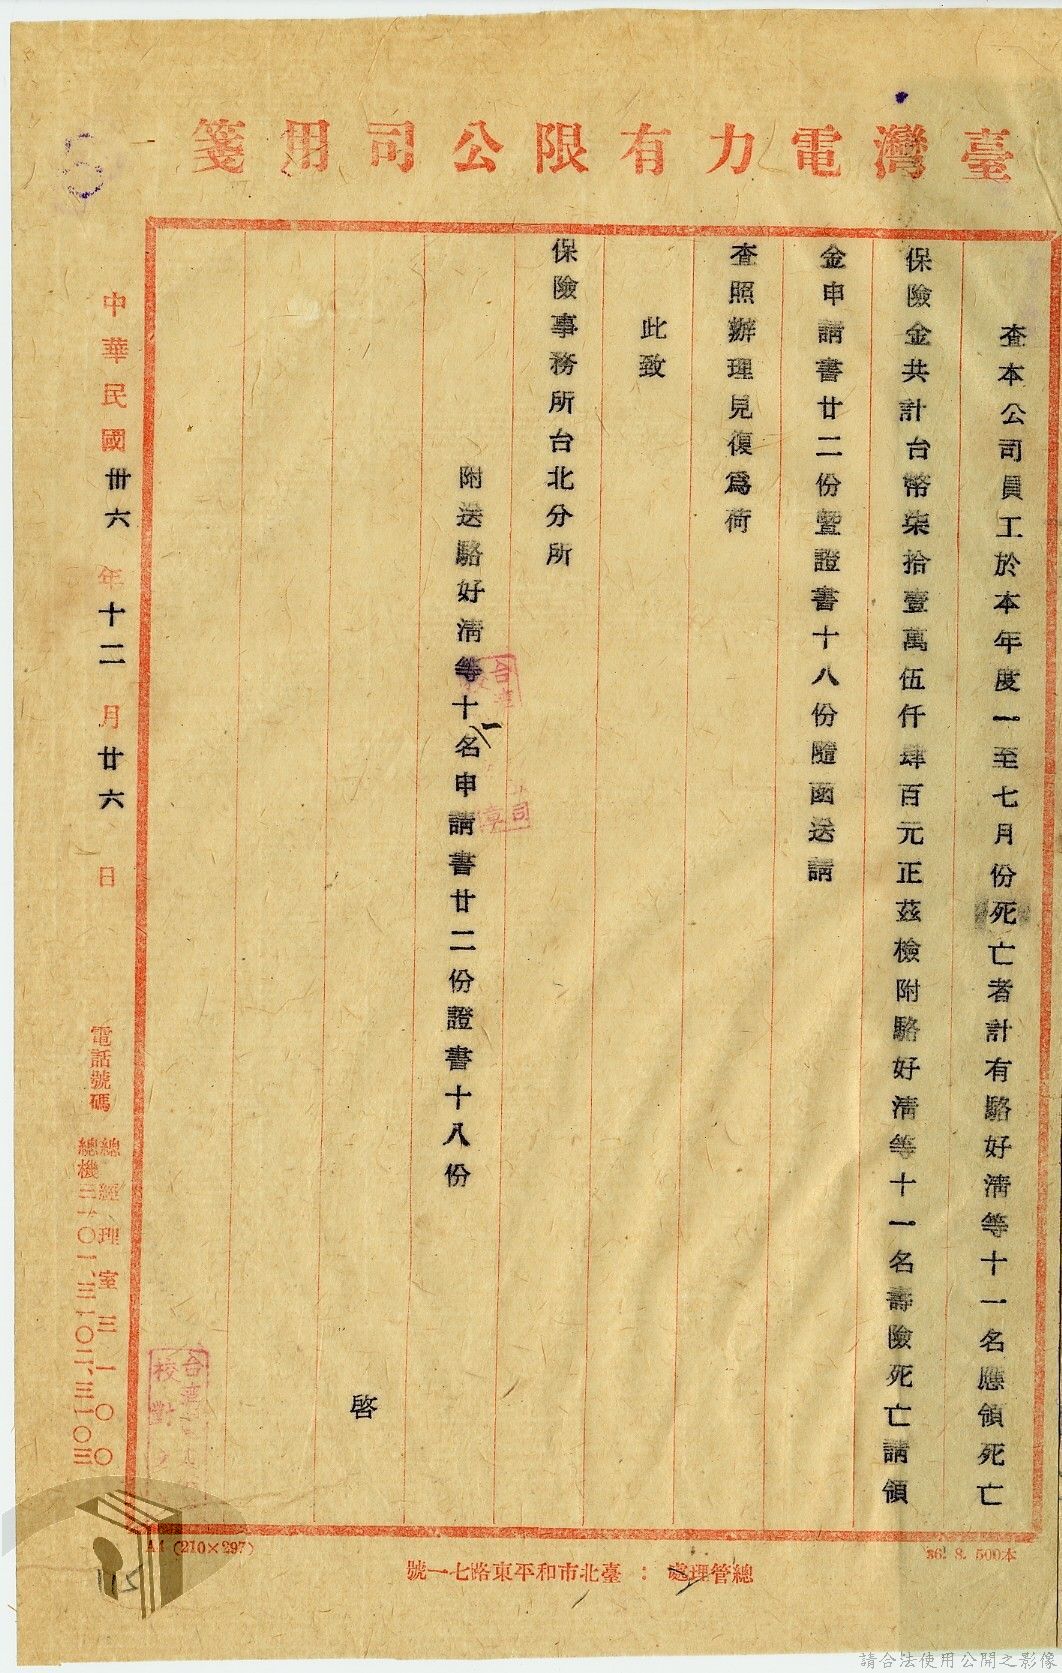 臺灣電力有限公司用箋
查本公司員工於本年度一至七月份死亡者計有駱好清等十一名應領死亡
保險金共計台幣柒拾壹萬伍仟肆百元正茲檢附駱好清等十一名壽險死亡請領
金申請書廿二份暨證書十八份隨函送請
查照辦理見復為荷
此致
保險事務所台北分所
附送駱好清等十一名申請書廿二份證書十八份
啓
中華民國卅六年十二月廿六日
電話號碼
總經理室三一〇〇
總機三一〇一、三一〇二、三一〇三
校對
A4 (210×297)
36. 8. 500本
總管理處：臺北市和平東路七一號
115
請合法使用公開之影像